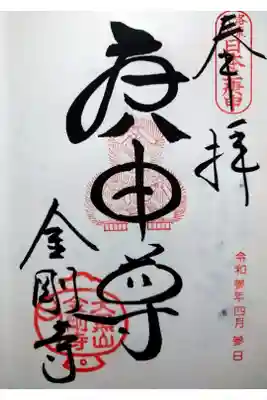 奉拝
庚申尊
金剛寺
令和参年四月参日